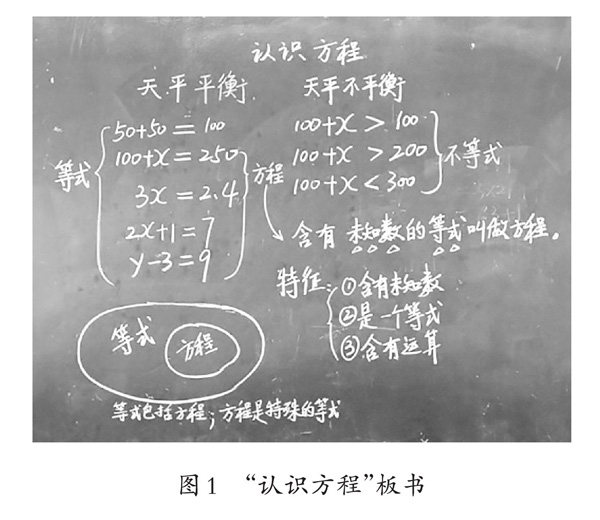 认识方程
天平平衡 天平不平衡
等式
50+50=100
100+x=250
3x=2.4
2x+1=7
y-3=9
方程
100+x>100
100+x>200
100+x<300
不等式
含有未知数的等式叫做方程。
特征:
①含有未知数
②是一个等式
③含有运算
等式 方程
等式包括方程;方程是特殊的等式
图1 “认识方程”板书